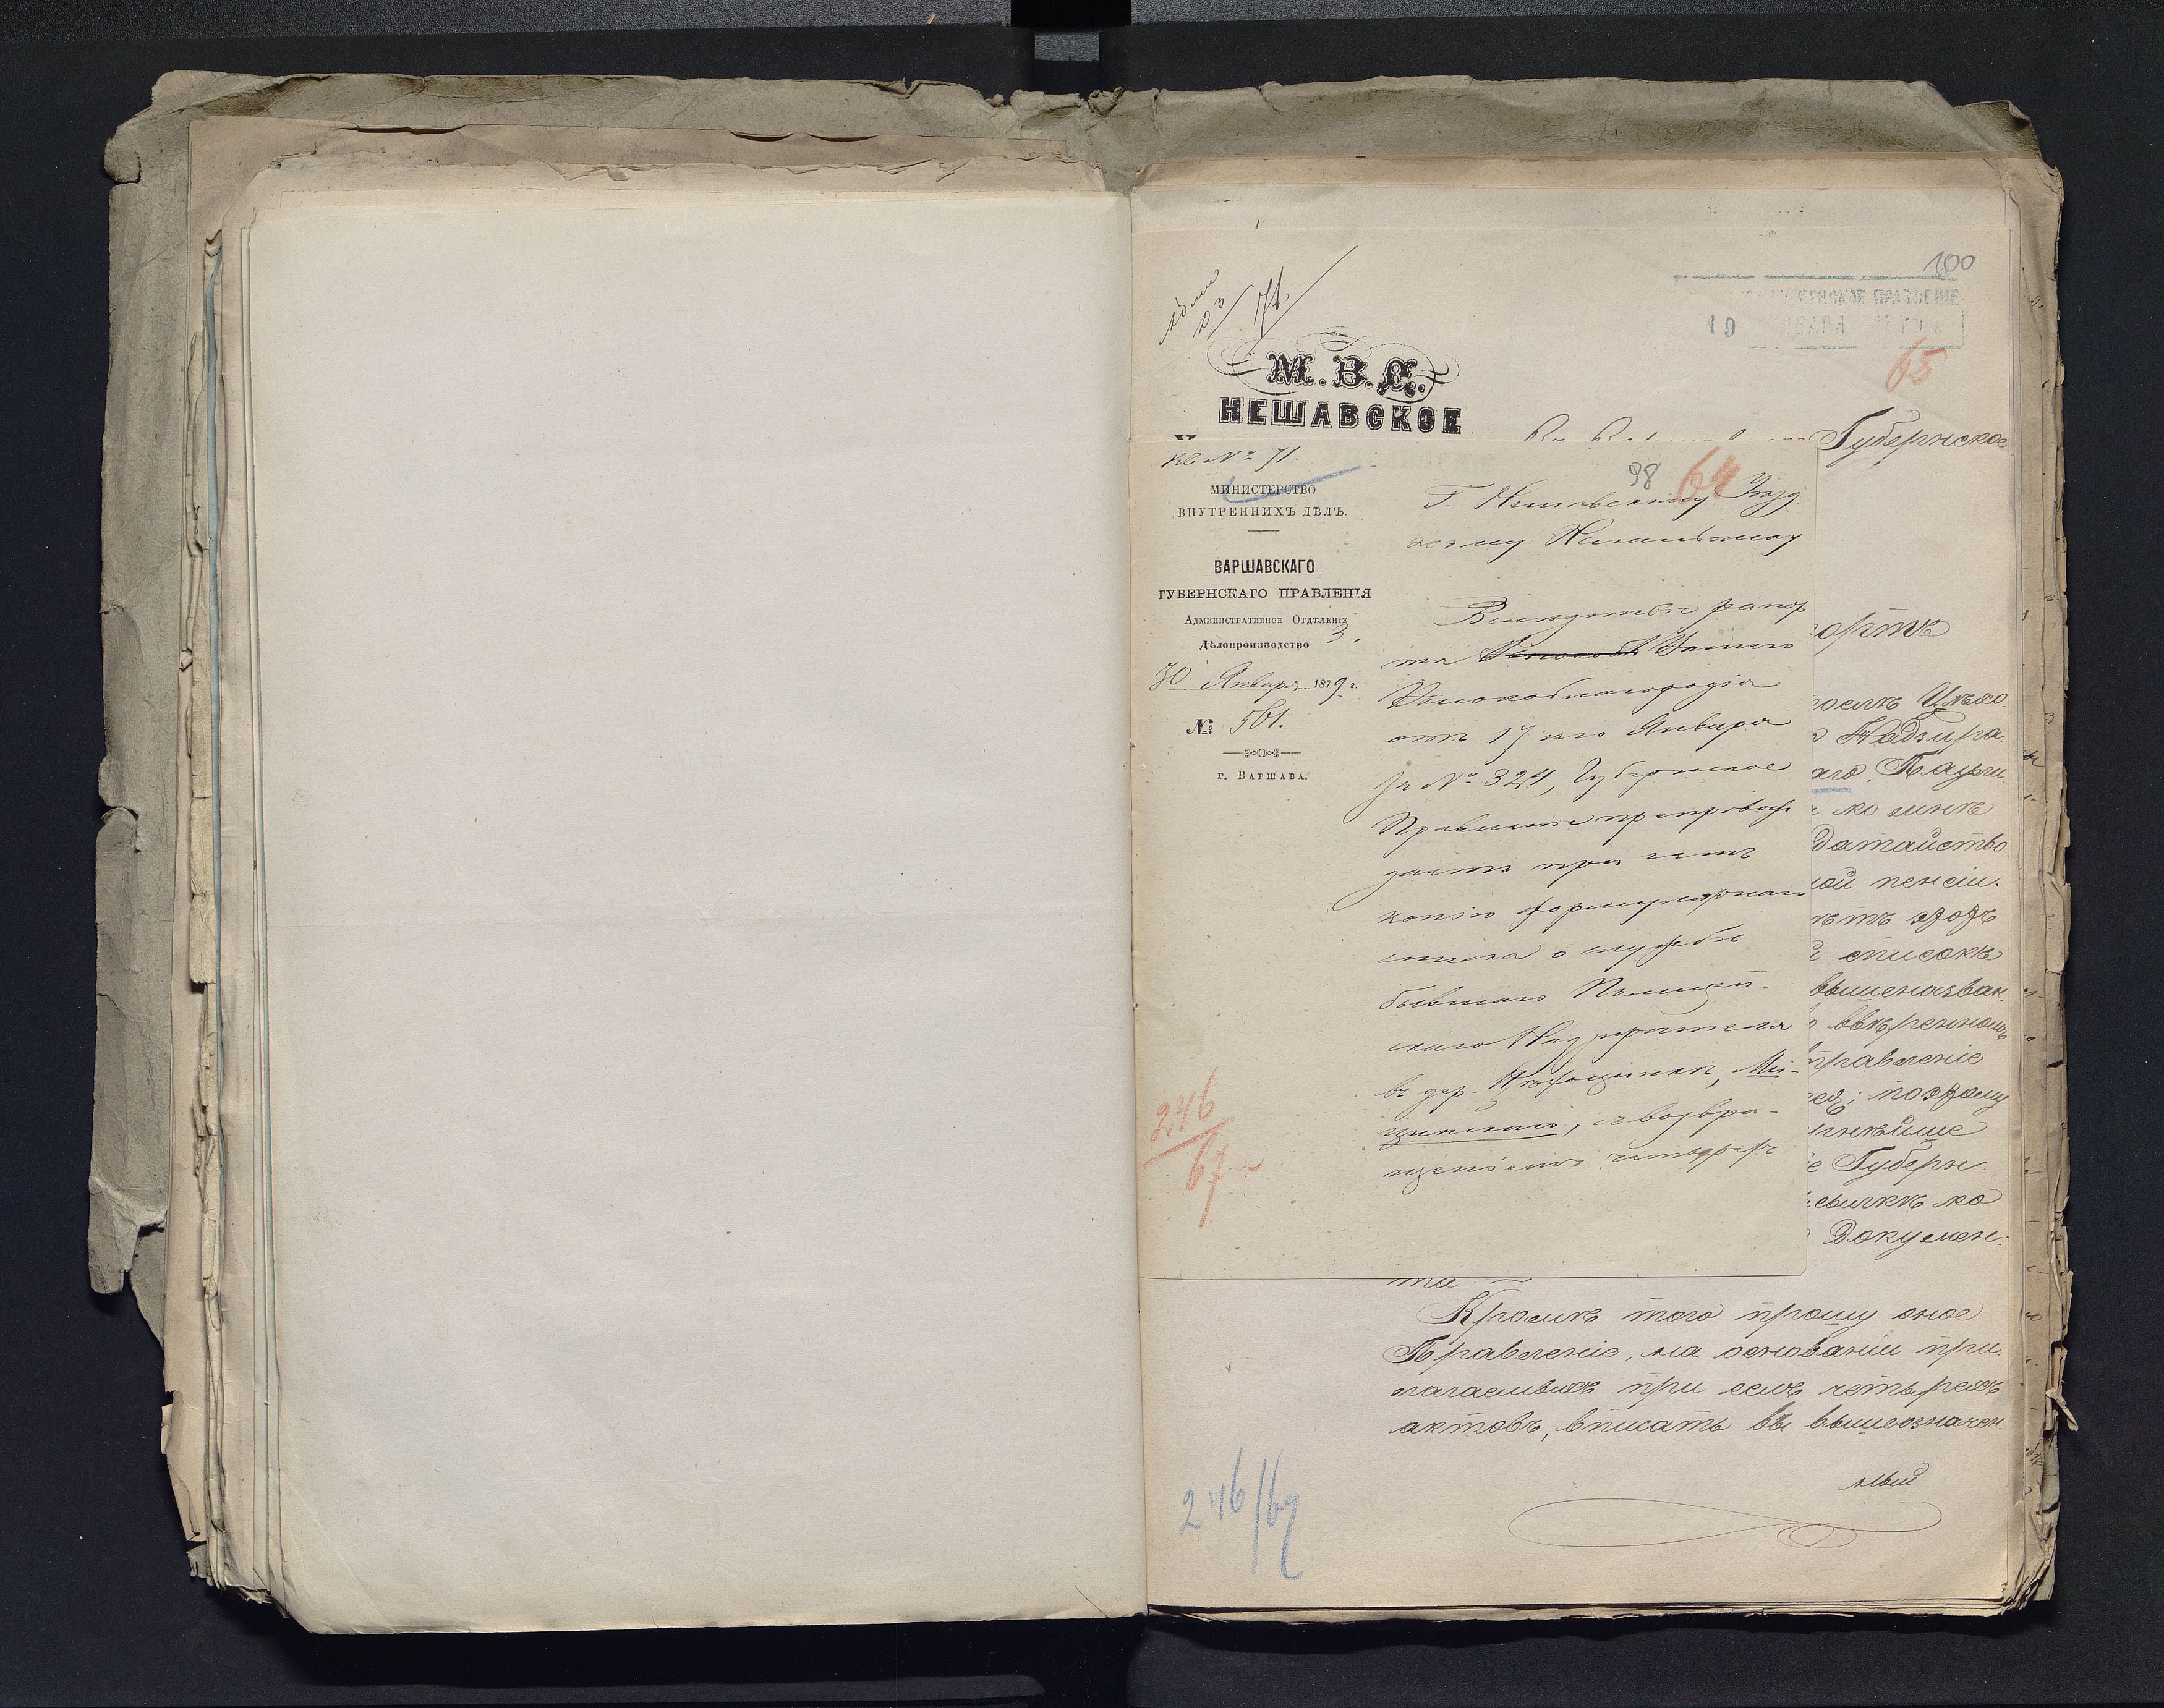 100
ГУБЕРНСКОЕ ПРАВЛЕНІЕ
19 ЯНВАРЯ 1879
65
71.
М. В. Д.
НЕШАВСКОЕ
Губернское
къ № 71.
98 64
МИНИСТЕРСТВО
ВНУТРЕННИХЪ ДѢЛЪ.
ВАРШАВСКАГО
ГУБЕРНСКАГО ПРАВЛЕНІЯ
Административное Отдѣленіе
Дѣлопроизводство 3.
30 Января 1879 г.
№ 561.
г. Варшава.
Г. Нешавскому Уѣзд
ному Начальнику
Вслѣдствіе рапор
та Вашего
Высокоблагородія
отъ 17 сего Января
за № 324, Губернское
Правленіе препровож
даетъ при семъ
копію формулярнаго
списка о службѣ
бывшаго Полицей-
скаго Надзирателя
въ дер. , Ми-
щинскаго, съ возвра-
щеніемъ четырехъ
ортъ
Надзира
аго,
ко мнѣ
датайство
ой пенсіи.
этотъ
списокъ
вышеназван
ввѣренномъ
правленіе
поэтому
Губерн
сылкѣ ко
Докумен-
та
Кромѣ того прошу оное
Правленіе, на основаніи при
лагаемыхъ при семъ четырехъ
актовъ, вписать въ вышеозначен
ный
246
67
246/67